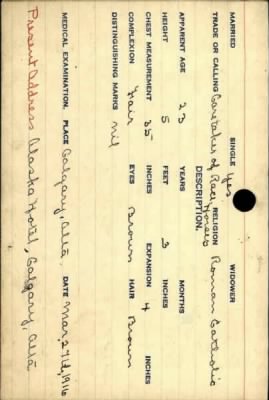 MARRIED SINGLE Yes WIDOWER
TRADE OR CALLING Caretaker of Race Horses RELIGION Roman Catholic
DESCRIPTION.
APPARENT AGE 23 YEARS MONTHS
HEIGHT 5 FEET 3 INCHES
CHEST MEASUREMENT 35 INCHES EXPANSION 4 INCHES
COMPLEXION Fair EYES Brown HAIR Brown
DISTINGUISHING MARKS nil
MEDICAL EXAMINATION. PLACE Calgary, Alta. DATE Mar. 27th, 1916
Present Address Alaska Hotel, Calgary, Alta